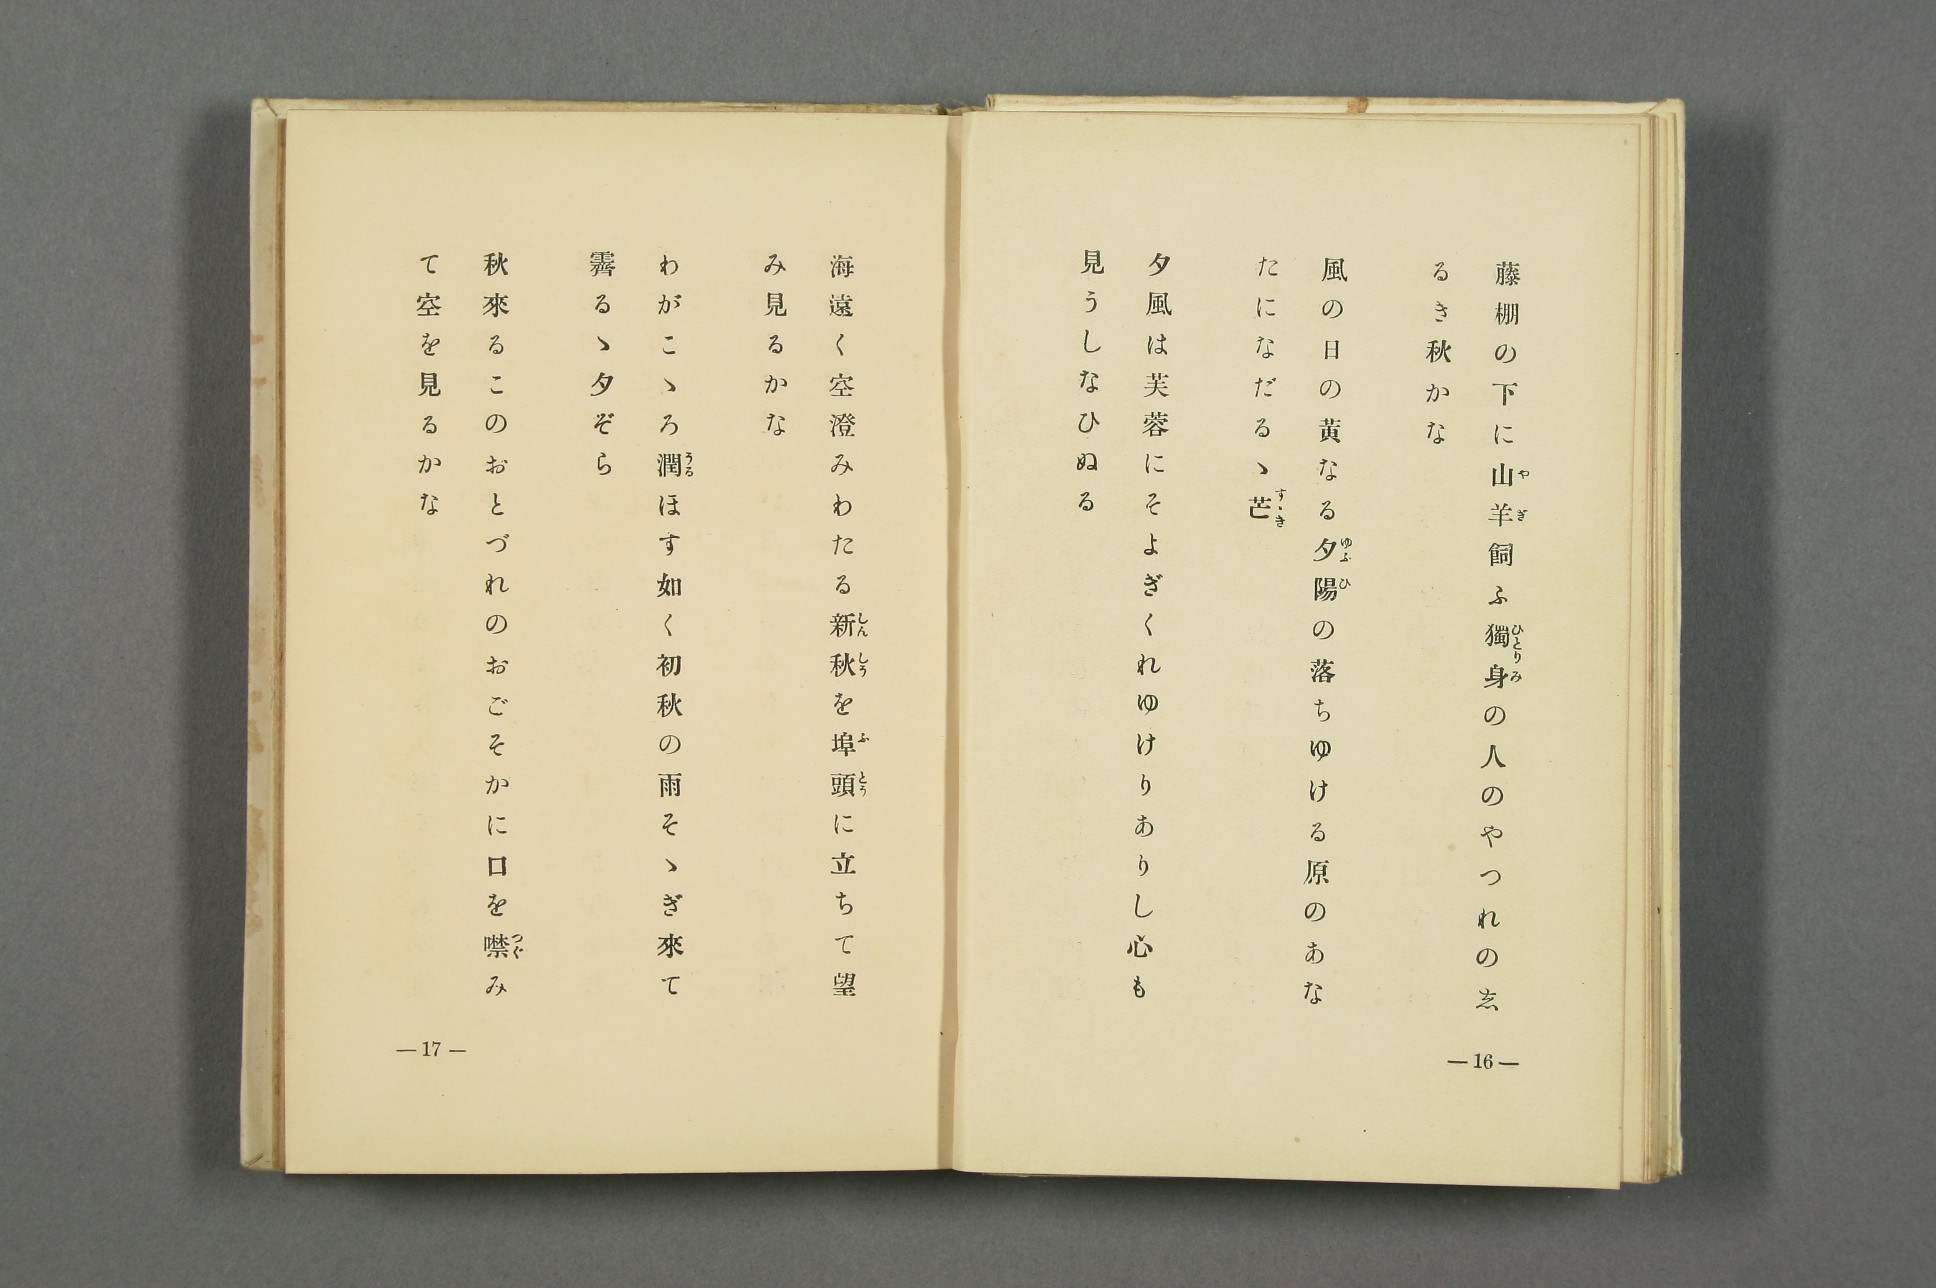 藤棚の下に山羊飼ふ獨身の人のやつれの志
るき秋かな
風の日の黄なる夕陽の落ちゆける原のあな
たになだるゝ芒
夕風は芙蓉にそよぎくれゆけりありし心も
見うしなひぬる
—16—
海遠く空澄みわたる新秋を埠頭に立ちて望
み見るかな
わがこゝろ潤ほす如く初秋の雨そゝぎ來て
霽るゝ夕ぞら
秋來るこのおとづれのおごそかに口を噤み
て空を見るかな
—17—